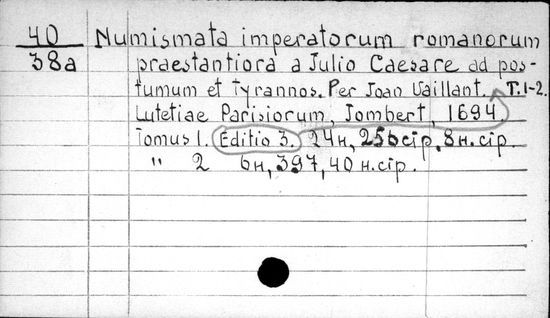 40 Numismata imperatorum romanorum
38a praestantiora a Julio Caesare ad pos-
tumum et Tyrannos. Per Joan Vaillant. T. 1-2.
Lutetiae Parisiorum, Jombert, 1694.
Tomus 1. Editio 3. 24н, 256 cip, 8н. cip.
" 2 6н, 397, 40 н. cip.